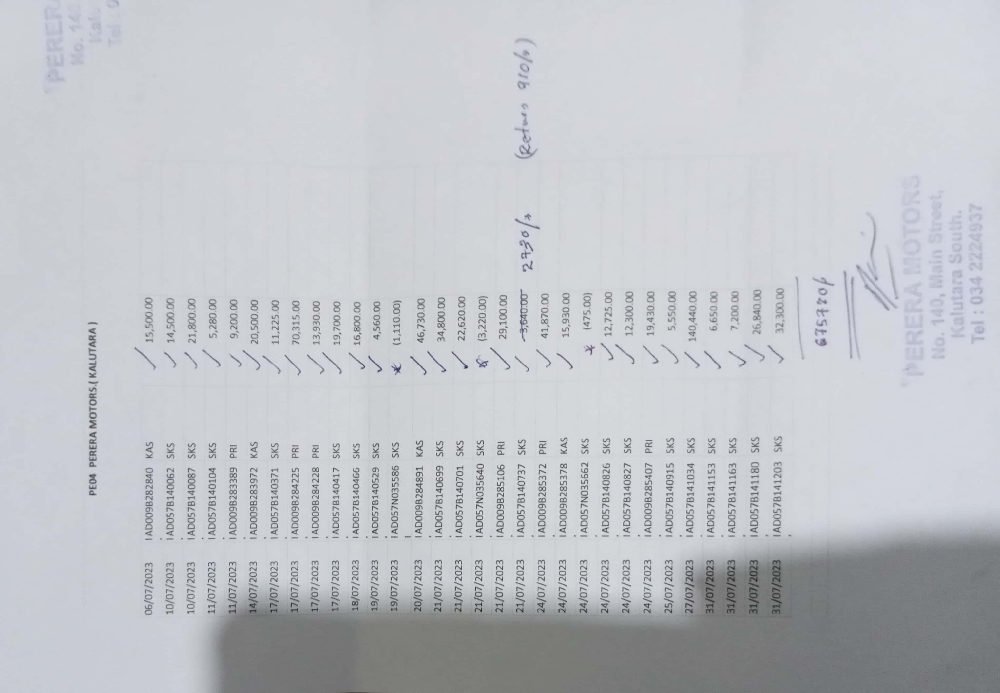 "PERERA
No. 14
Kal
Tel : 0
PE04 PERERA MOTORS.( KALUTARA )
06/07/2023 IAD009B282840 KAS 15,500.00
10/07/2023 IAD057B140062 SKS 14,500.00
10/07/2023 IAD057B140087 SKS 21,800.00
11/07/2023 IAD057B140104 SKS 5,280.00
11/07/2023 IAD009B283389 PRI 9,200.00
14/07/2023 IAD009B283972 KAS 20,500.00
17/07/2023 IAD057B140371 SKS 11,225.00
17/07/2023 IAD009B284225 PRI 70,315.00
17/07/2023 IAD009B284228 PRI 13,930.00
17/07/2023 IAD057B140417 SKS 19,700.00
18/07/2023 IAD057B140466 SKS 16,800.00
19/07/2023 IAD057B140529 SKS 4,560.00
19/07/2023 IAD057N035586 SKS (1,110.00)
20/07/2023 IAD009B284891 KAS 46,730.00
21/07/2023 IAD057B140699 SKS 34,800.00
21/07/2023 IAD057B140701 SKS 22,620.00
21/07/2023 IAD057N035640 SKS (3,220.00)
21/07/2023 IAD009B285106 PRI 29,100.00
21/07/2023 IAD057B140737 SKS 3,640.00 2730/= (Return 910/=)
24/07/2023 IAD009B285372 PRI 41,870.00
24/07/2023 IAD009B285378 KAS 15,930.00
24/07/2023 IAD057N035662 SKS (475.00)
24/07/2023 IAD057B140826 SKS 12,725.00
24/07/2023 IAD057B140827 SKS 12,300.00
24/07/2023 IAD009B285407 PRI 19,430.00
25/07/2023 IAD057B140915 SKS 5,550.00
27/07/2023 IAD057B141034 SKS 140,440.00
31/07/2023 IAD057B141153 SKS 6,650.00
31/07/2023 IAD057B141163 SKS 7,200.00
31/07/2023 IAD057B141180 SKS 26,840.00
31/07/2023 IAD057B141203 SKS 32,300.00
675720/=
"PERERA MOTORS
No. 140, Main Street,
Kalutara South.
Tel : 034 2224937